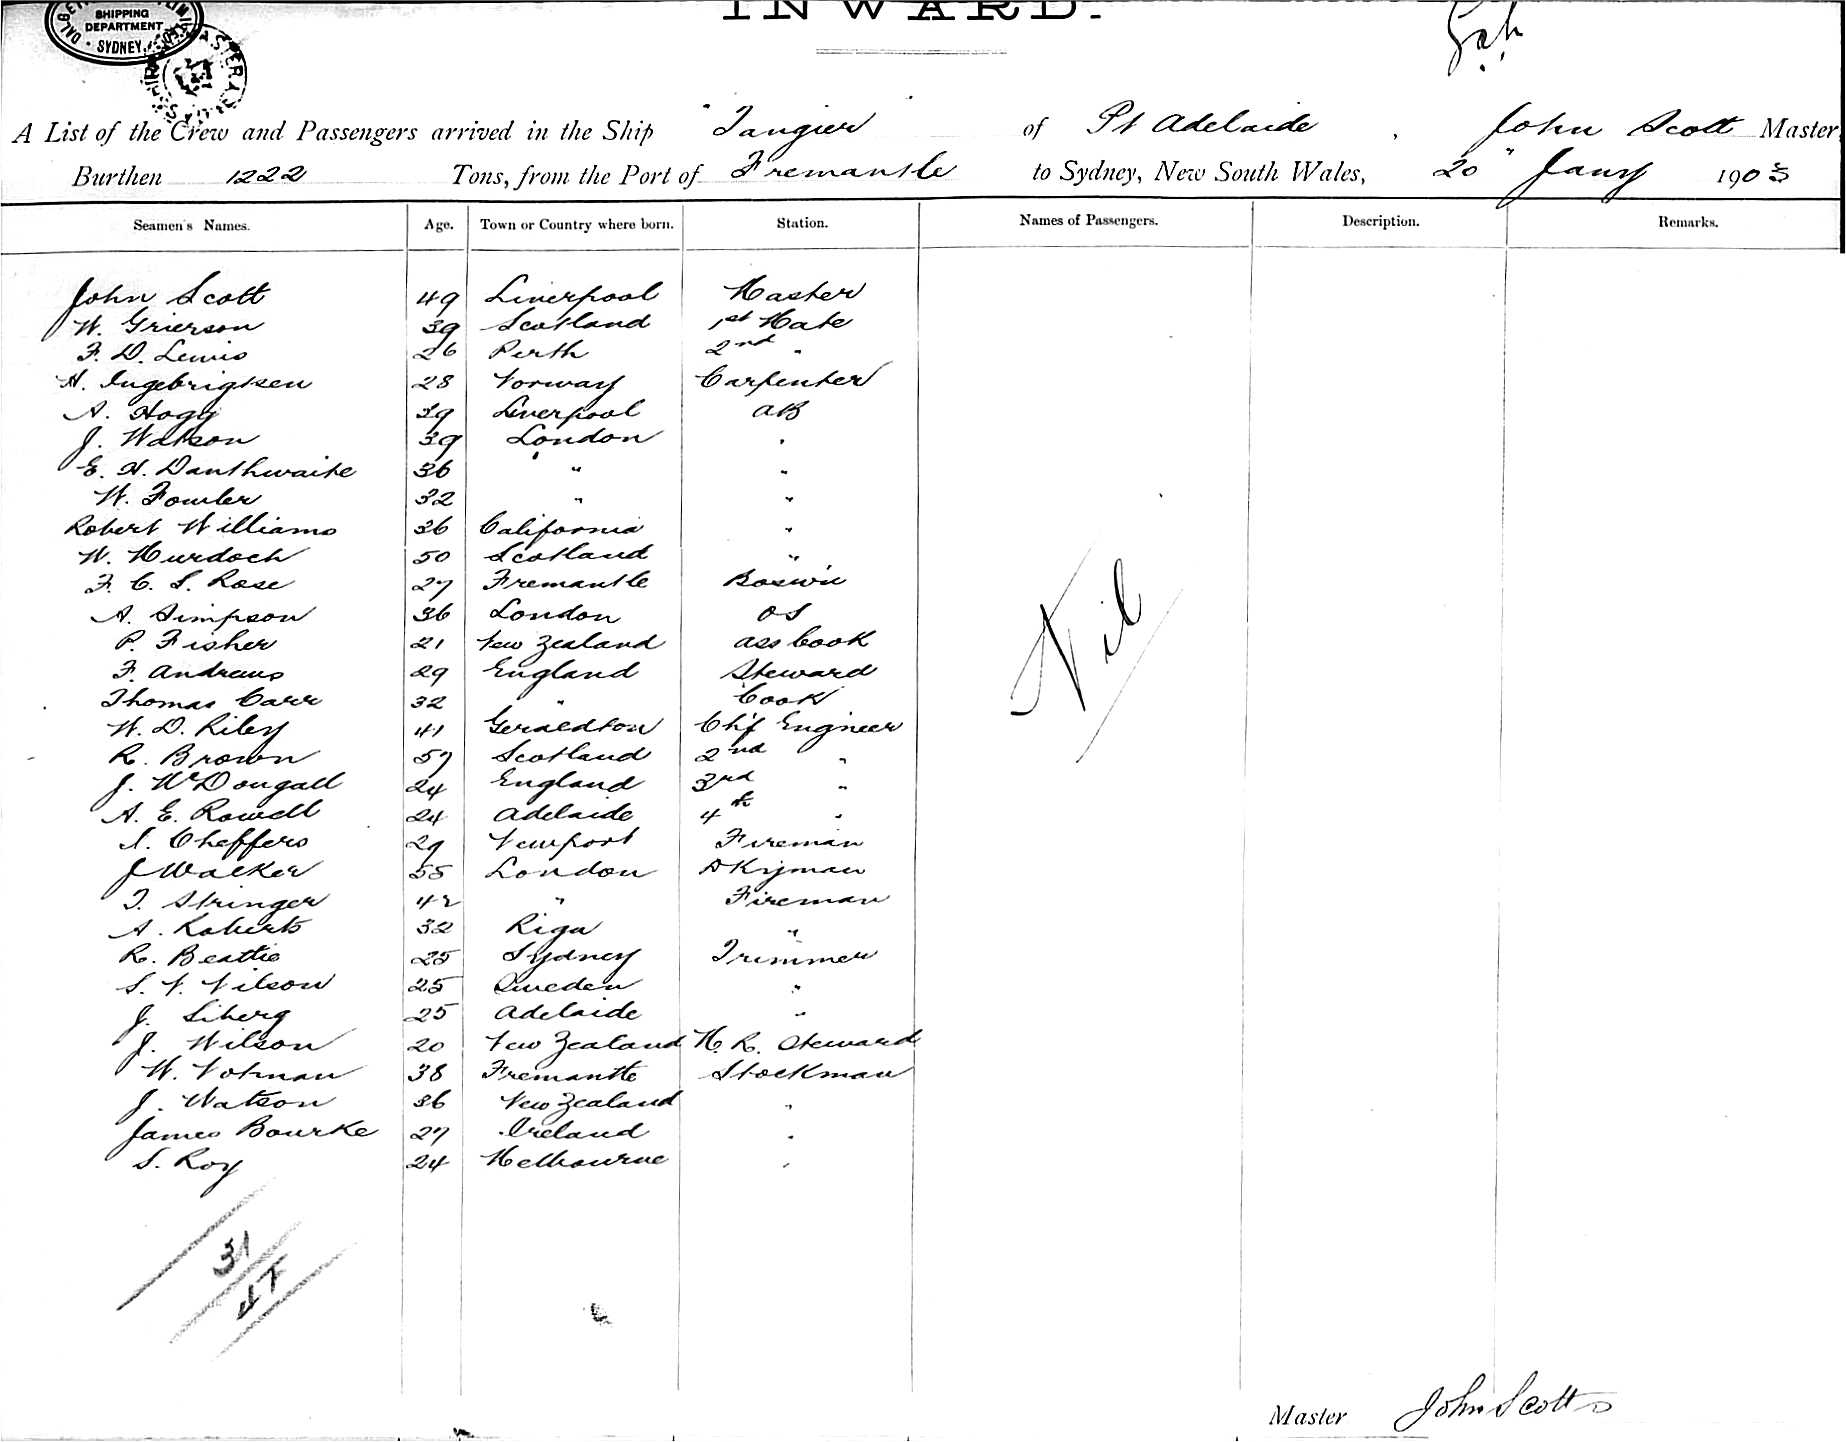 SHIPPING
DEPARTMENT
SYDNEY.
INWARD.
A List of the Crew and Passengers arrived in the Ship "Tangier of Pt Adelaide, John Scott Master,
Burthen 1222 Tons, from the Port of Fremantle to Sydney, New South Wales, 20" Jany 1903
Seamen's Names. Age. Town or Country where born. Station. Names of Passengers. Description. Remarks.
John Scott 49 Liverpool Master
W. Grierson 39 Scotland 1st Mate
F. D. Lewis 26 Perth 2nd "
A. Ingebrigtsen 28 Norway Carpenter
A. Hogg 39 Liverpool AB
J. Watson 39 London "
E. H. Danthwaite 36 " "
W. Fowler 32 " "
Robert Williams 36 California "
W. Murdoch 50 Scotland "
F. C. S. Rose 27 Fremantle Bosw'n
A. Simpson 36 London OS
P. Fisher 21 New Zealand ass Cook
F. Andrews 29 England Steward
Thomas Carr 32 " Cook
W. D. Riley 41 Geraldton Chf Engineer
R. Brown 57 Scotland 2nd "
J. McDougall 24 England 3rd "
A. E. Rowell 24 Adelaide 4th "
A. Cheffers 29 Newport Fireman
J Walker 55 London Dkyman
T. Stringer 42 " Fireman
A. Roberts 32 Riga "
R. Beattie 25 Sydney Trimmer
S. N. Nilson 25 Sweden "
J. Siberg 25 Adelaide "
J. Wilson 20 New Zealand M. R. Steward
W. Notman 38 Fremantle Stockman
J. Watson 36 New Zealand "
James Bourke 27 Ireland "
S. Roy 24 Melbourne "
Nil
31
Master John Scott